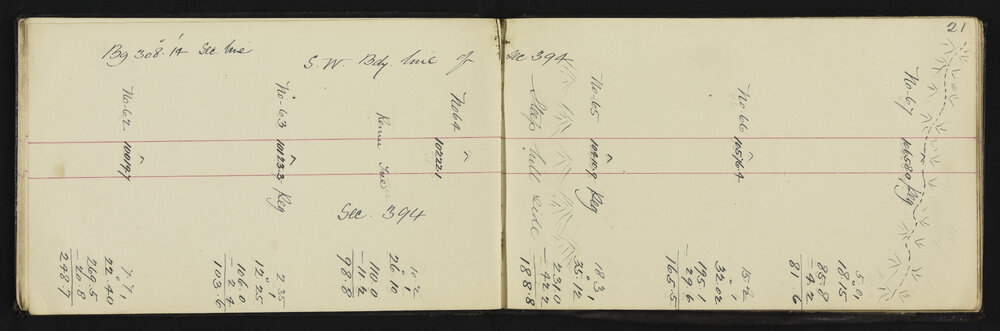 21
Bg 308°.14' Sec. line
S. W. Bdy line of Sec 394
No-62
10019.7
7. 7.
22°.40
269.5
- 20.8
248.7
No-63
10123.3 Peg
2.35
12°.25
106.0
- 2.4
103.6
No 64
10222.1
Sec. 394
10.2
26°.10
110.0
- 11.2
98.8
Steep hill side
No-65
10410.9 Peg
18.3
35°.12
231.0
- 42.2
188.8
No 66
10576.4
15.2
32°.02
195.1
- 29.6
165.5
No-67
10658.0 Peg
5.0
18°15
85.8
- 4.2
81.6